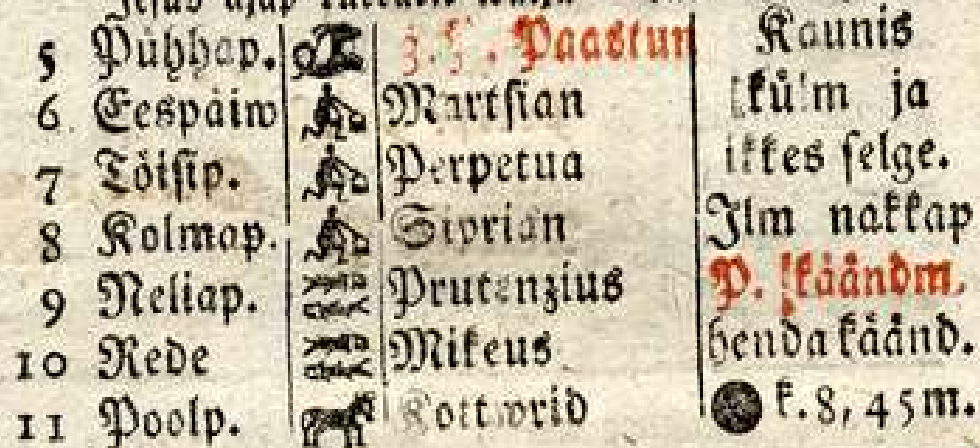 5 Pühhap. Paastun Kaunis
6 Eespäiw Martsian külm ja
7 Töisip. Perpetua ikkes selge.
8 Kolmap. Siprian Ilm nakkap
9 Neliap. Prutenzius P. käändm.
10 Rede Mikeus henda käänd.
11 Poolp. Kottwrid k. 8, 45 m.